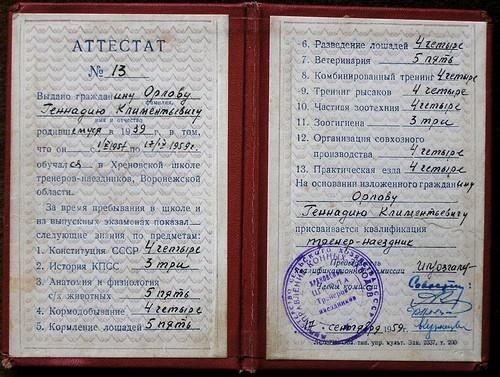 АТТЕСТАТ
№ 13
Выдано гражданину Орлову
фамилия,
Геннадию Климентьевичу
имя и отчество
родившемуся в 1939 г., в том,
что он с 1/X 1957 по 17/IX 1959 г.
обучался в Хреновской школе
тренеров-наездников, Воронежской
области.
За время пребывания в школе и
на выпускных экзаменах показал
следующие знания по предметам:
1. Конституция СССР 4 четыре
2. История КПСС 3 три
3. Анатомия и физиология
с/х животных 5 пять
4. Кормодобывание 4 четыре
5. Кормление лошадей 5 пять
6. Разведение лошадей 4 четыре
7. Ветеринария 5 пять
8. Комбинированный тренинг 4 четыре
9. Тренинг рысаков 4 четыре
10. Частная зоотехния 4 четыре
11. Зоогигиена 3 три
12. Организация совхозного
производства 4 четыре
13. Практическая езда 4 четыре
На основании изложенного гражданину
Орлову
Геннадию Климентьевичу
присваивается квалификация
тренер-наездник
Председатель
квалификационной комиссии
Члены комиссии
17 сентября 1959 г.